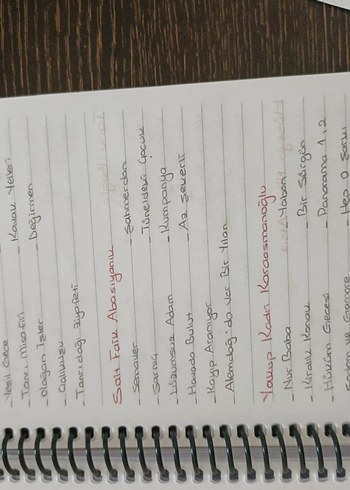 - Yeşil Gece
- Tanrı misafiri - Kavak Yelleri
- Olağan İşler - Değirmen
- Çalıkuşu
- Tanrıdağı Ziyafeti
Sait Faik Abasıyanık
- Semaver - Şahmerdan
- Sarnıç - Tüneldeki Çocuk
- Lüzumsuz Adam - Kumpanya
- Havada Bulut - Az Şekerli
- Kayıp Aranıyor
Alemdağ'da Var Bir Yılan
Yakup Kadri Karaosmanoğlu
- Nur Baba - Yaban
- Kiralık Konak - Bir Sürgün
- Hüküm Gecesi - Panorama 1,2
Sodom ve Gomore - Hep O Şarkı